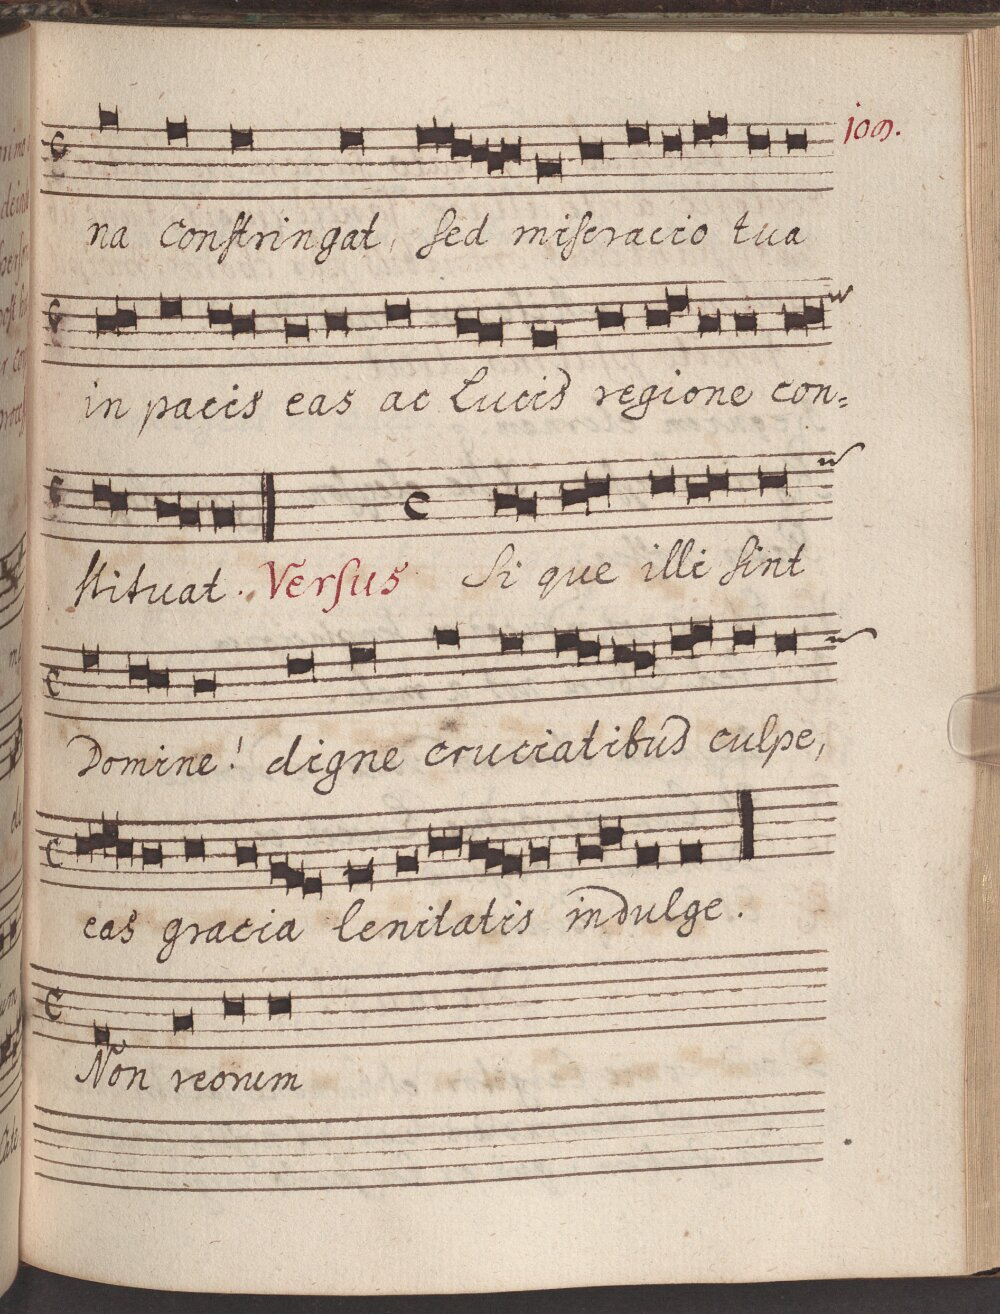 109.
na constringat, sed miseracio tua
in pacis eas ac Lucis regione con=
stituat. Versus Si que illi sint
Domine! digne cruciatibus culpe,
eas gracia lenitatis indulge.
Nõn reorum